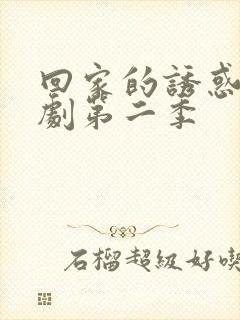 回家的誘惑
劇第二季
石榴超級好喫